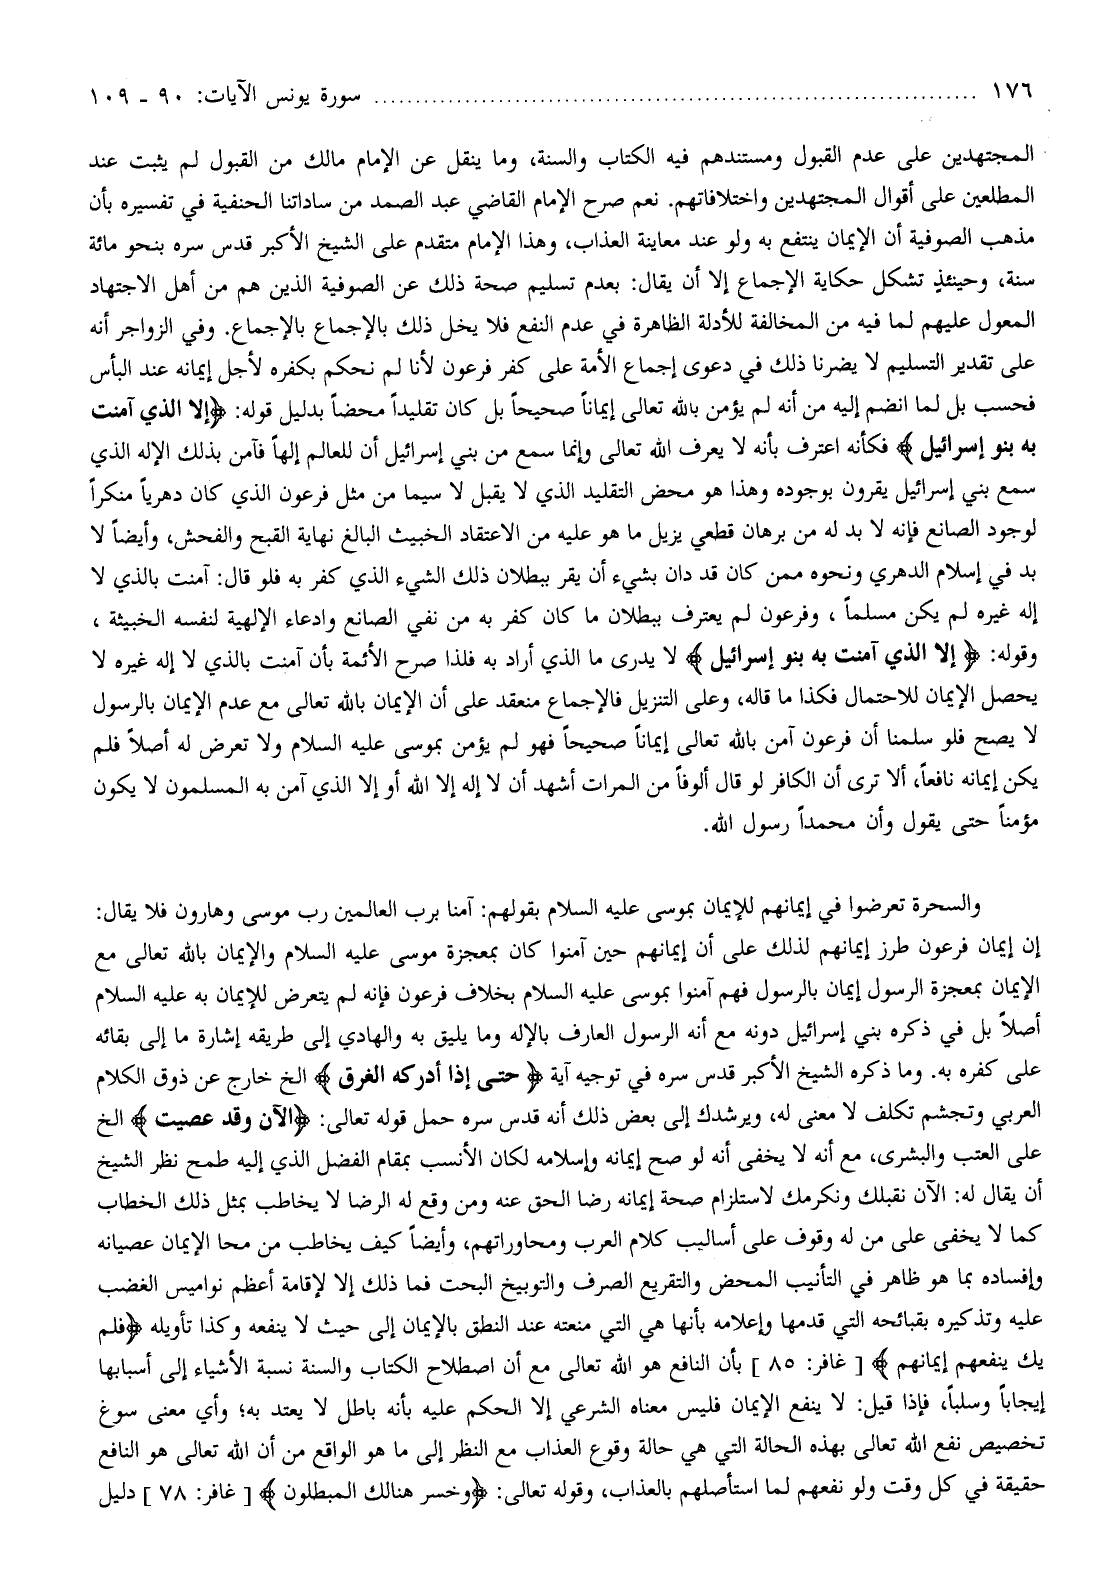 ١٧٦ ............................................................ سورة يونس الآيات: ٩٠ - ١٠٩
المجتهدين على عدم القبول ومستندهم فيه الكتاب والسنة، وما ينقل عن الإمام مالك من القبول لم يثبت عند
المطلعين على أقوال المجتهدين واختلافاتهم. نعم صرح الإمام القاضي عبد الصمد من ساداتنا الحنفية في تفسيره بأن
مذهب الصوفية أن الإيمان ينتفع به ولو عند معاينة العذاب، وهذا الإمام متقدم على الشيخ الأكبر قدس سره بنحو مائة
سنة، وحينئذٍ تشكل حكاية الإجماع إلا أن يقال: بعدم تسليم صحة ذلك عن الصوفية الذين هم من أهل الاجتهاد
المعول عليهم لما فيه من المخالفة للأدلة الظاهرة في عدم النفع فلا يخل ذلك بالإجماع بالإجماع. وفي الزواجر أنه
على تقدير التسليم لا يضرنا ذلك في دعوى إجماع الأمة على كفر فرعون لأنا لم نحكم بكفره لأجل إيمانه عند البأس
فحسب بل لما انضم إليه من أنه لم يؤمن بالله تعالى إيماناً صحيحاً بل كان تقليداً محضاً بدليل قوله: ﴿إلا الذي آمنت
به بنو إسرائيل ﴾ فكأنه اعترف بأنه لا يعرف الله تعالى وإنما سمع من بني إسرائيل أن للعالم إلهاً فآمن بذلك الإله الذي
سمع بني إسرائيل يقرون بوجوده وهذا هو محض التقليد الذي لا يقبل لا سيما من مثل فرعون الذي كان دهرياً منكراً
لوجود الصانع فإنه لا بد له من برهان قطعي يزيل ما هو عليه من الاعتقاد الخبيث البالغ نهاية القبح والفحش، وأيضاً لا
بد في إسلام الدهري ونحوه ممن كان قد دان بشيء أن يقر ببطلان ذلك الشيء الذي كفر به فلو قال: آمنت بالذي لا
إله غيره لم يكن مسلماً ، وفرعون لم يعترف ببطلان ما كان كفر به من نفي الصانع وادعاء الإلهية لنفسه الخبيثة ،
وقوله: ﴿ إلا الذي آمنت به بنو إسرائيل ﴾ لا يدرى ما الذي أراد به فلذا صرح الأئمة بأن آمنت بالذي لا إله غيره لا
يحصل الإيمان للاحتمال فكذا ما قاله، وعلى التنزيل فالإجماع منعقد على أن الإيمان بالله تعالى مع عدم الإيمان بالرسول
لا يصح فلو سلمنا أن فرعون آمن بالله تعالى إيماناً صحيحاً فهو لم يؤمن بموسى عليه السلام ولا تعرض له أصلاً فلم
يكن إيمانه نافعاً، ألا ترى أن الكافر لو قال ألوفاً من المرات أشهد أن لا إله إلا الله أو إلا الذي آمن به المسلمون لا يكون
مؤمناً حتى يقول وأن محمداً رسول الله.
والسحرة تعرضوا في إيمانهم للإيمان بموسى عليه السلام بقولهم: آمنا برب العالمين رب موسى وهارون فلا يقال:
إن إيمان فرعون طرز إيمانهم لذلك على أن إيمانهم حين آمنوا كان بمعجزة موسى عليه السلام والإيمان بالله تعالى مع
الإيمان بمعجزة الرسول إيمان بالرسول فهم آمنوا بموسى عليه السلام بخلاف فرعون فإنه لم يتعرض للإيمان به عليه السلام
أصلاً بل في ذكره بني إسرائيل دونه مع أنه الرسول العارف بالإله وما يليق به والهادي إلى طريقه إشارة ما إلى بقائه
على كفره به. وما ذكره الشيخ الأكبر قدس سره في توجيه آية ﴿ حتى إذا أدركه الغرق ﴾ الخ خارج عن ذوق الكلام
العربي وتجشم تكلف لا معنى له، ويرشدك إلى بعض ذلك أنه قدس سره حمل قوله تعالى: ﴿الآن وقد عصيت ﴾ الخ
على العتب والبشرى، مع أنه لا يخفى أنه لو صح إيمانه وإسلامه لكان الأنسب بمقام الفضل الذي إليه طمح نظر الشيخ
أن يقال له: الآن نقبلك ونكرمك لاستلزام صحة إيمانه رضا الحق عنه ومن وقع له الرضا لا يخاطب بمثل ذلك الخطاب
كما لا يخفى على من له وقوف على أساليب كلام العرب ومحاوراتهم، وأيضاً كيف يخاطب من محا الإيمان عصيانه
وإفساده بما هو ظاهر في التأنيب المحض والتقريع الصرف والتوبيخ البحت فما ذلك إلا لإقامة أعظم نواميس الغضب
عليه وتذكيره بقبائحه التي قدمها وإعلامه بأنها هي التي منعته عند النطق بالإيمان إلى حيث لا ينفعه وكذا تأويله ﴿فلم
يك ينفعهم إيمانهم ﴾ [ غافر: ٨٥ ] بأن النافع هو الله تعالى مع أن اصطلاح الكتاب والسنة نسبة الأشياء إلى أسبابها
إيجاباً وسلباً، فإذا قيل: لا ينفع الإيمان فليس معناه الشرعي إلا الحكم عليه بأنه باطل لا يعتد به؛ وأي معنى سوغ
تخصيص نفع الله تعالى بهذه الحالة التي هي حالة وقوع العذاب مع النظر إلى ما هو الواقع من أن الله تعالى هو النافع
حقيقة في كل وقت ولو نفعهم لما استأصلهم بالعذاب، وقوله تعالى: ﴿وخسر هنالك المبطلون ﴾ [ غافر: ٧٨ ] دليل